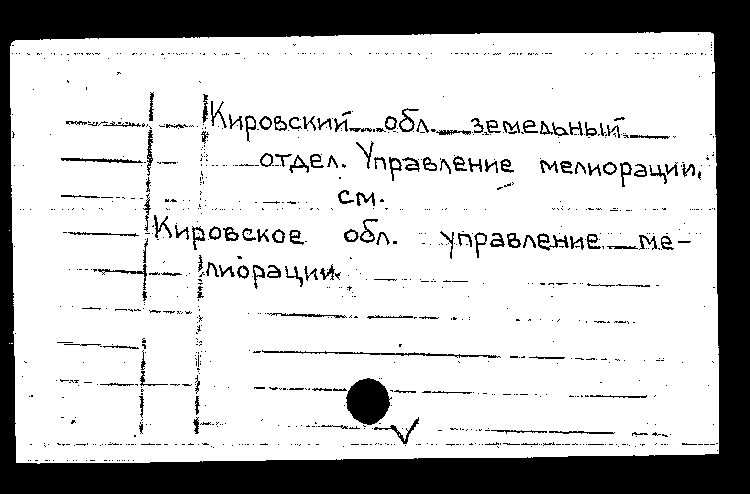 Кировский обл. земельный
отдел. Управление мелиорации,
см.
Кировское обл. управление ме-
лиорации.